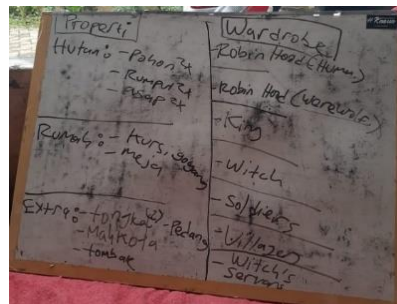 Properti
Hutan: - Pohon2x
- Rumput2x
Rumah: - Kursi goyang
- Meja
Extra: - Tongkat (2) - Pedang
- Mahkota
- Tombak
Wardrobe
- Robin Hood (Human)
- Robin Hood (Warewolf)
- King
- Witch
- Soldiers
- Villager
- Witch's
Servant